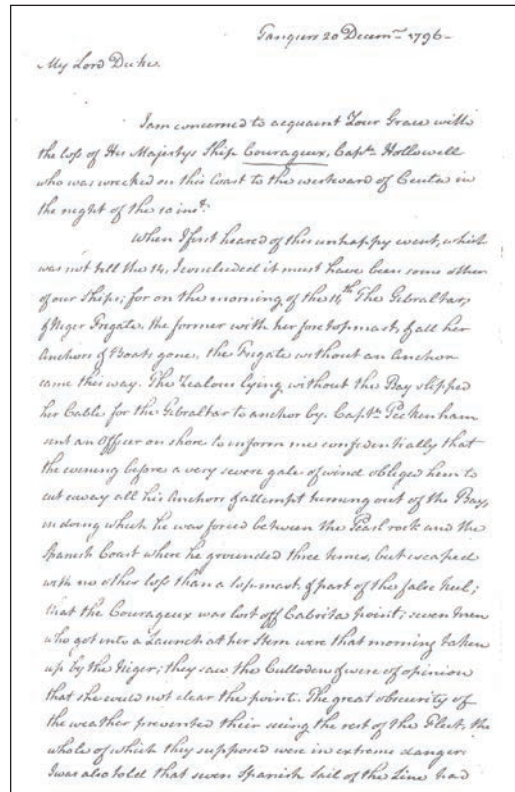 Tangiers 20 Decem.~ 1796-
My Lord Duke.
I am concerned to acquaint Your Grace with
the loss of His Majestys Ship Courageux, Capt.n Hollowell
who was wrecked on this Coast to the westward of Ceuta in
the night of the 10 inst:
When I first heard of this unhappy event, which
was not till the 14, I concluded it must have been some other
of our Ships; for on the morning of the 11th The Gibraltar,
& Niger Frigate, the former with her foretopmast, & all her
Anchors & Boats gone, the Frigate without an Anchor
came this way. The Zealous lying without the Bay slipped
her Cable for the Gibraltar to anchor by. Capt.n Peckenham
sent an Officer on shore to inform me confidentially that
the evening before a very severe gale of wind obliged him to
cut away all his Anchors & attempt turning out of the Bay,
in doing which he was forced between the Pearl rock and the
Spanish Coast where he grounded three times, but escaped
with no other loss than a topmast & part of the false keel;
that the Courageux was lost off Cabrita point; seven men
who got into a Launch at her Stern were that morning taken
up by the Niger; they saw the Culloden & were of opinion
that she could not clear the point. The great obscurity of
the weather prevented their seeing the rest of the Fleet, the
whole of which they supposed were in extreme danger.
I was also told that seven Spanish Sail of the Line had